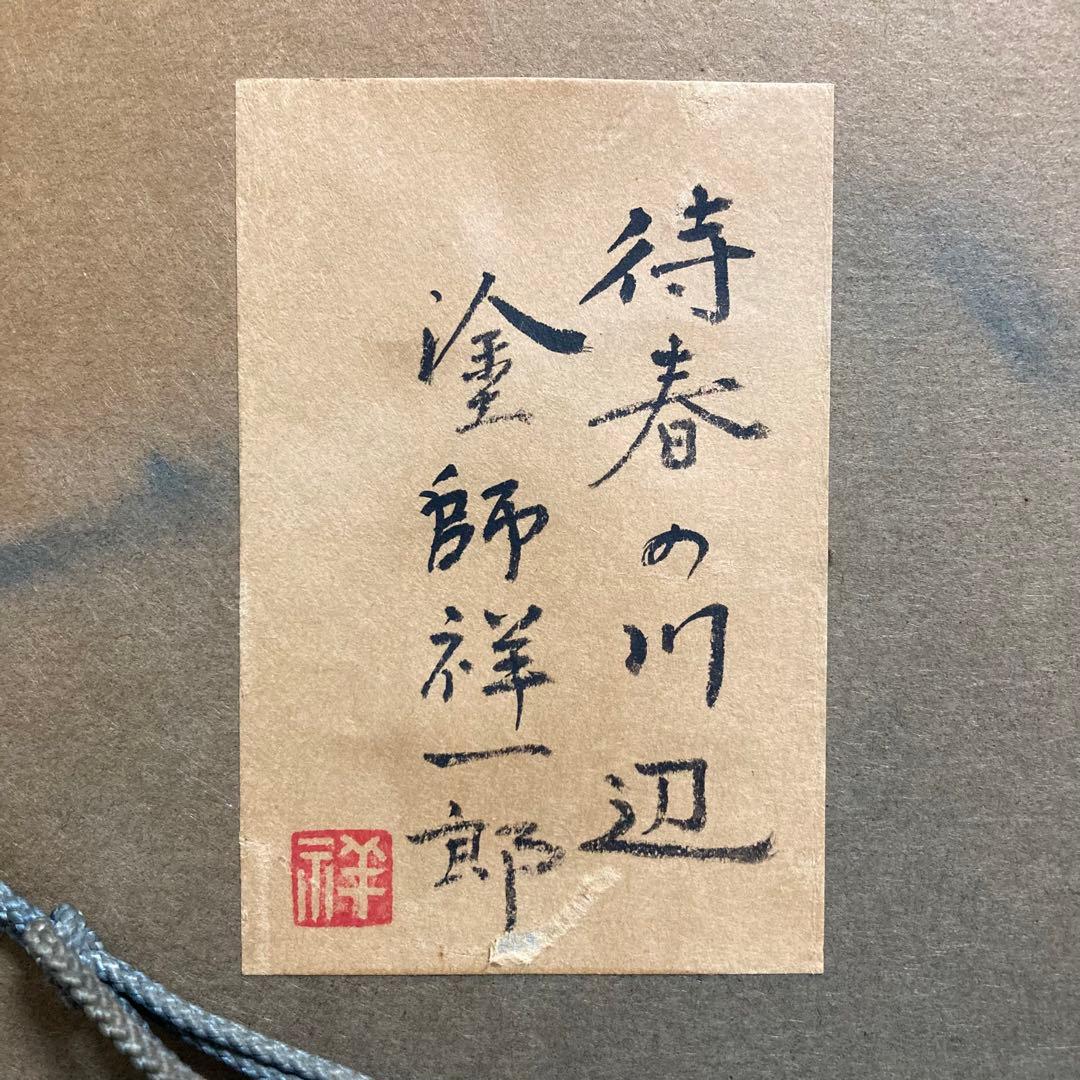 待春の川辺
塗師祥一郎
祥